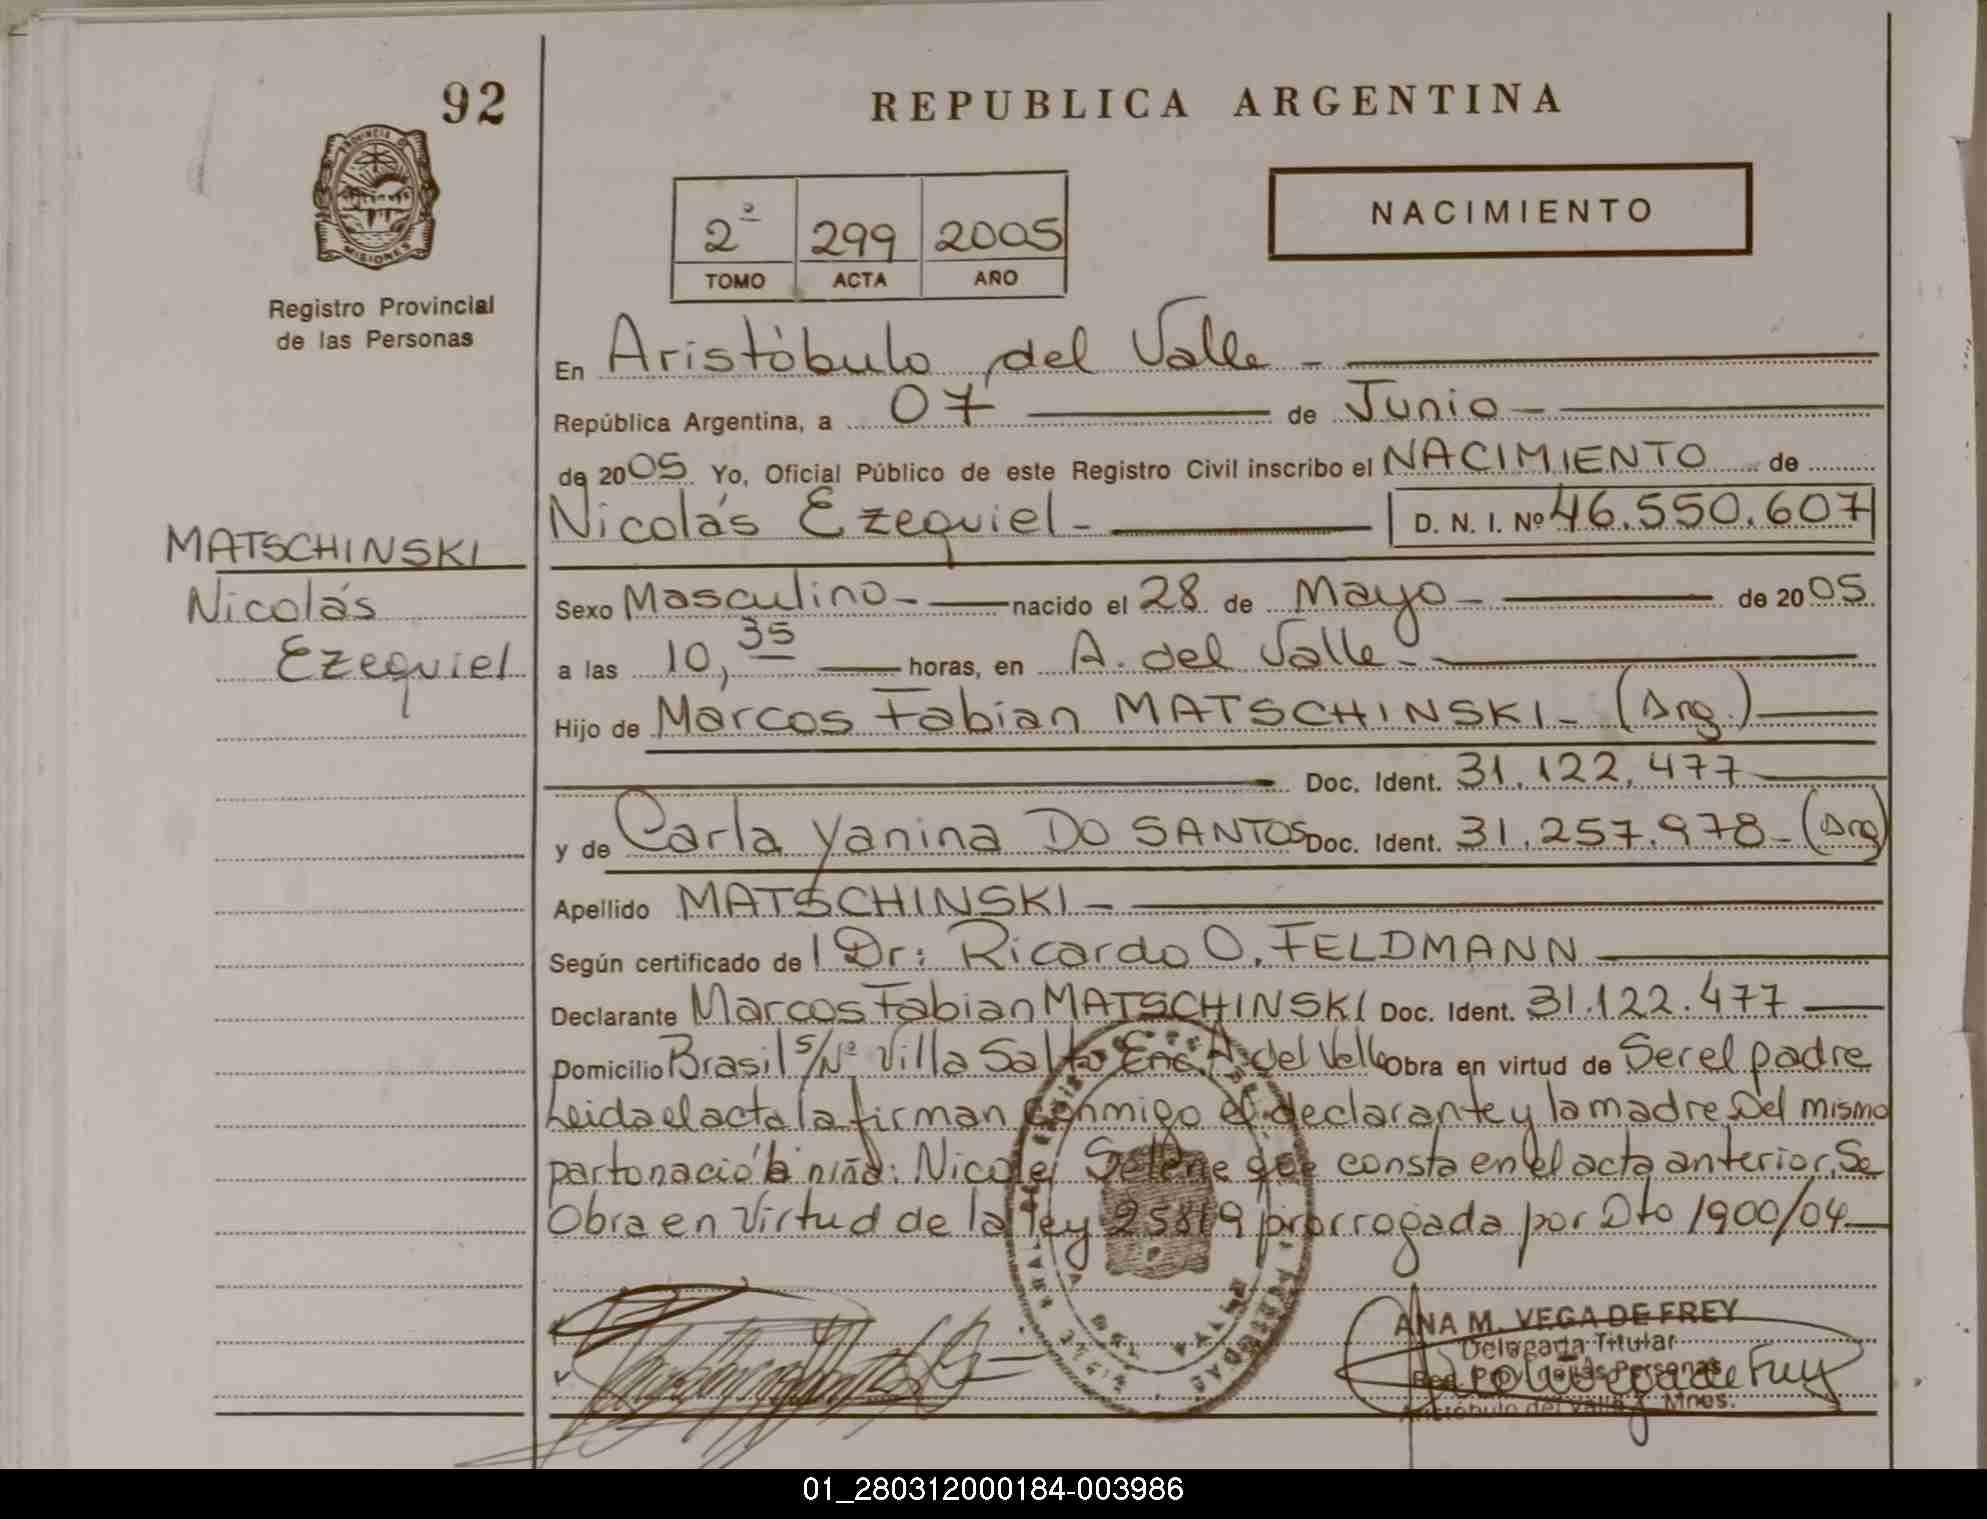 92
REPUBLICA ARGENTINA
PROVINCIA DE
MISIONES
Registro Provincial
de las Personas
2º 299 2005
TOMO ACTA AÑO
NACIMIENTO
En Aristóbulo del Valle -
República Argentina, a 07 de Junio -
de 2005 Yo, Oficial Público de este Registro Civil inscribo el NACIMIENTO de
Nicolás Ezequiel - D. N. I. Nº 46.550.607
MATSCHINSKI
Nicolás
Ezequiel
Sexo Masculino - nacido el 28 de Mayo - de 2005
a las 10,35 horas, en A. del Valle -
Hijo de Marcos Fabian MATSCHINSKI - (Arg.)
Doc. Ident. 31.122.477
y de Carla Yanina DO SANTOS Doc. Ident. 31.257.978 - (Arg)
Apellido MATSCHINSKI -
Según certificado de Dr: Ricardo O. FELDMANN
Declarante Marcos Fabian MATSCHINSKI Doc. Ident. 31.122.477
Domicilio Brasil S/Nº Villa Salto Enc. A. del Valle Obra en virtud de Ser el padre
Leida el acta la firman conmigo el declarante y la madre Del mismo
parto nació la niña: Nicole Selene que consta en el acta anterior. Se
Obra en Virtud de la ley 25819 prorrogada por Dto 1900/04
ANA M. VEGA DE FREY
Delegada Titular
de las Personas
Aristóbulo del Valle - Mnes.
01_280312000184-003986